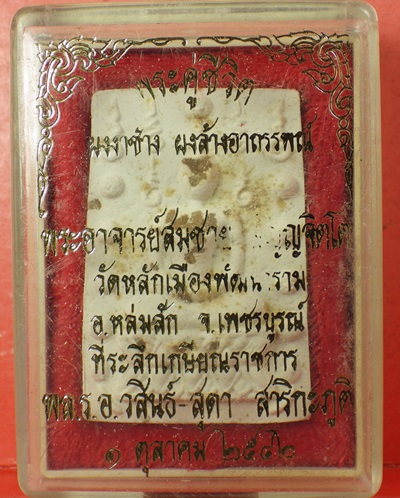 พระคู่ชีวิต
ผงงาช้าง ผงล้างอาถรรพณ์
พระอาจารย์สมชาย
วัดหลักเมืองพัฒนาราม
อ.หล่มสัก จ.เพชรบูรณ์
ที่ระลึกเกษียณราชการ
พล.ร.อ.วสินธ์-สุดา สาริกะภูติ
๑ ตุลาคม ๒๕๔๒